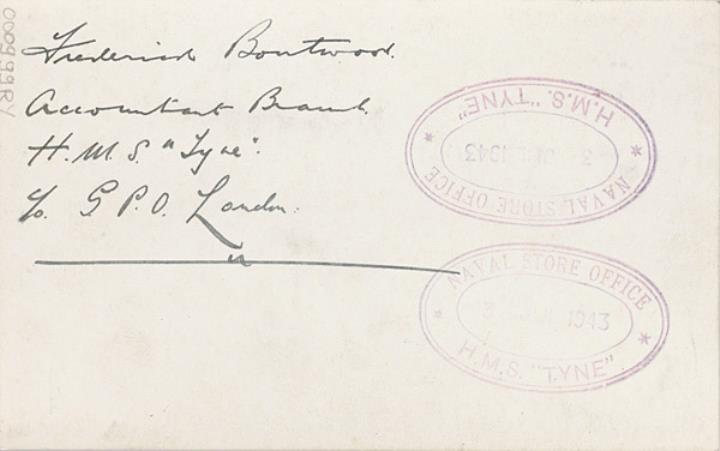 Frederick Boutwood.
Accountant Branch.
H.M.S. "Tyne".
c/o. G.P.O. London.
H.M.S. "TYNE"
3 JUL 1943
* NAVAL STORE OFFICE *
NAVAL STORE OFFICE
3 JUL 1943
* H.M.S. "TYNE" *
000999RY